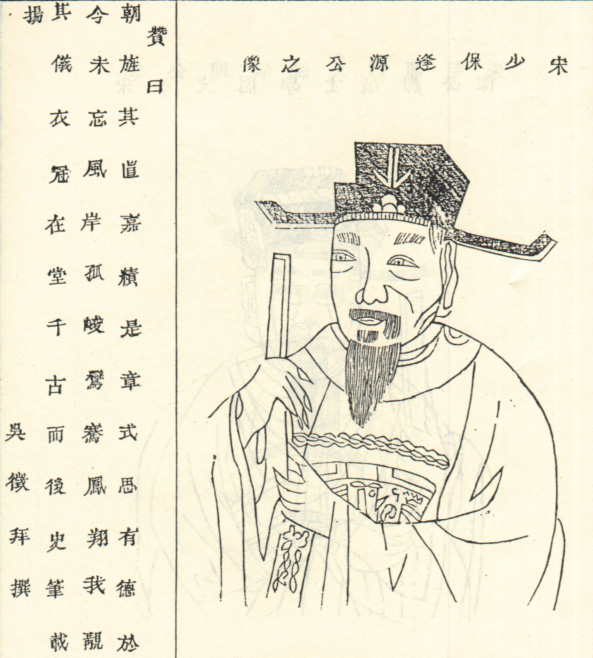 宋少保逢源公之像
贊曰
朝旌其直嘉績是章式思有德於
今未忘風岸孤峻鸞鶱鳳翔我覯
其儀衣冠在堂千古而後史筆載
揚
吳徵拜撰